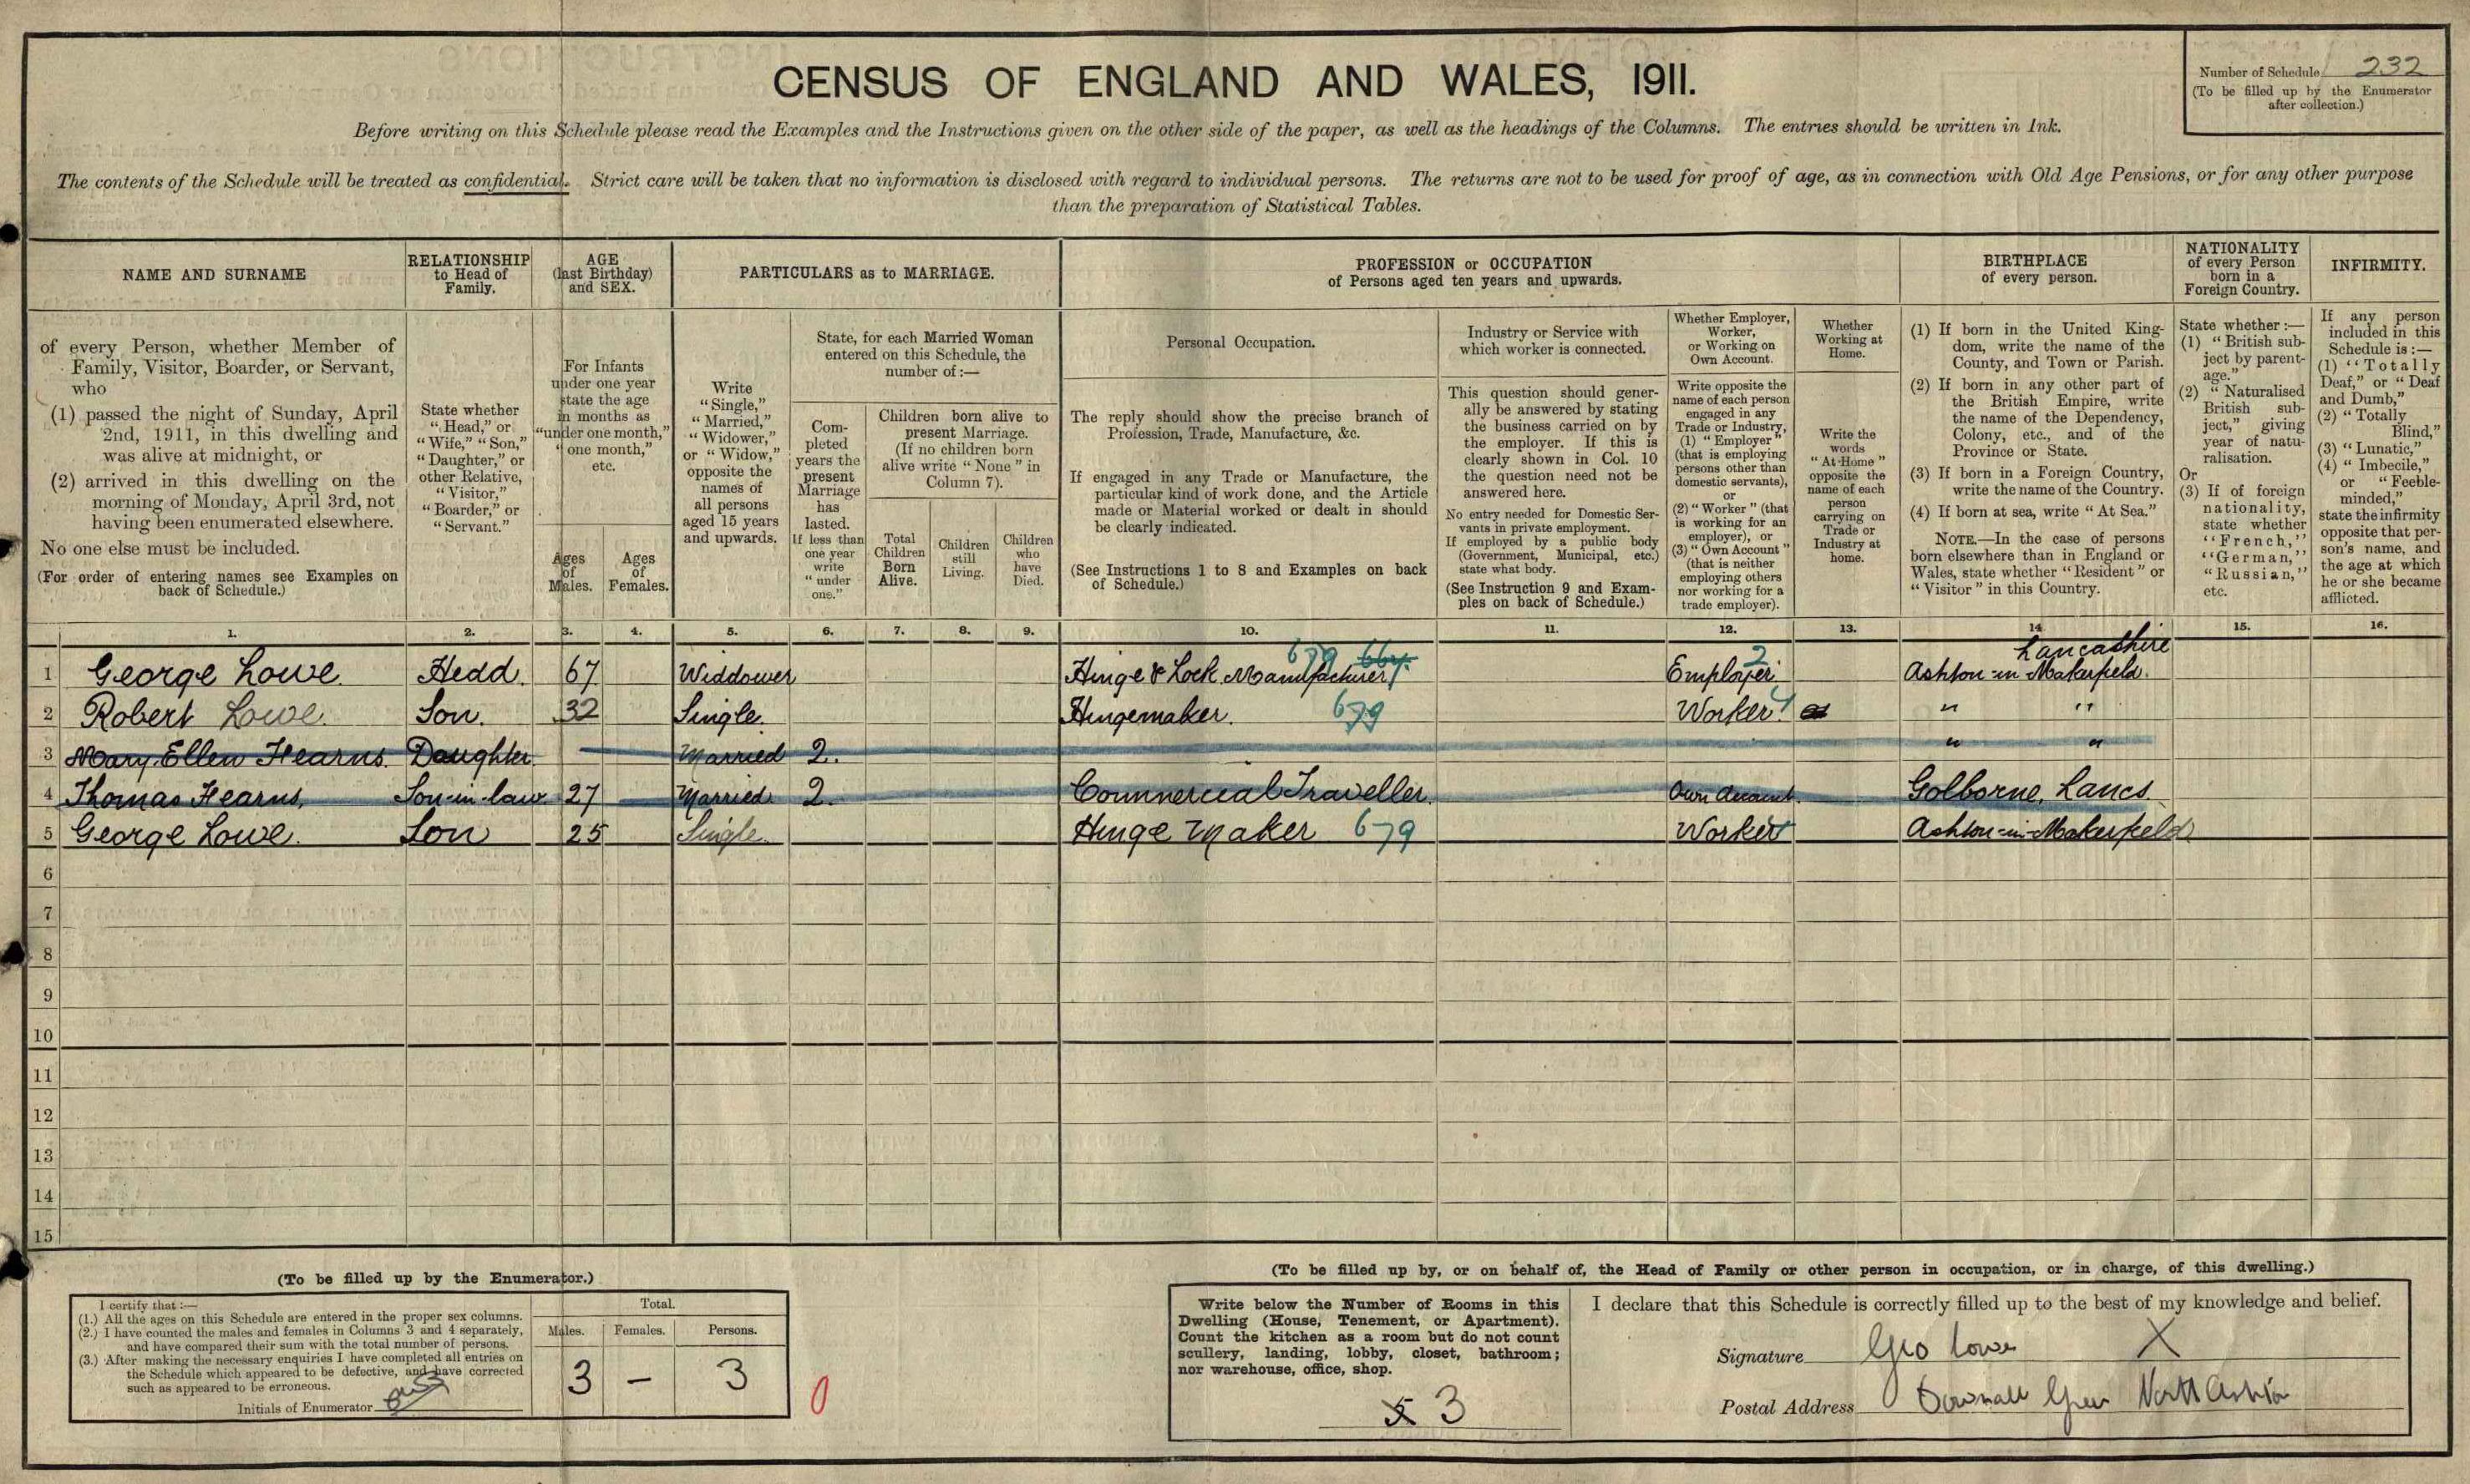 CENSUS OF ENGLAND AND WALES, 1911.
Number of Schedule 232
(To be filled up by the Enumerator
after collection.)
Before writing on this Schedule please read the Examples and the Instructions given on the other side of the paper, as well as the headings of the Columns. The entries should be written in Ink.
The contents of the Schedule will be treated as confidential. Strict care will be taken that no information is disclosed with regard to individual persons. The returns are not to be used for proof of age, as in connection with Old Age Pensions, or for any other purpose
than the preparation of Statistical Tables.
NAME AND SURNAME
of every Person, whether Member of
Family, Visitor, Boarder, or Servant,
who
(1) passed the night of Sunday, April
2nd, 1911, in this dwelling and
was alive at midnight, or
(2) arrived in this dwelling on the
morning of Monday, April 3rd, not
having been enumerated elsewhere.
No one else must be included.
(For order of entering names see Examples on
back of Schedule.)
RELATIONSHIP
to Head of
Family.
State whether
"Head," or
"Wife," "Son,"
"Daughter," or
other Relative,
"Visitor,"
"Boarder," or
"Servant."
AGE
(last Birthday)
and SEX.
For Infants
under one year
state the age
in months as
"under one month,"
"one month,"
etc.
Ages
of
Males.
Ages
of
Females.
PARTICULARS as to MARRIAGE.
Write
"Single,"
"Married,"
"Widower,"
or "Widow,"
opposite the
names of
all persons
aged 15 years
and upwards.
State, for each Married Woman
entered on this Schedule, the
number of:—
Com-
pleted
years the
present
Marriage
has
lasted.
If less than
one year
write
"under
one."
Children born alive to
present Marriage.
(If no children born
alive write "None" in
Column 7).
Total
Children
Born
Alive.
Children
still
Living.
Children
who
have
Died.
PROFESSION or OCCUPATION
of Persons aged ten years and upwards.
Personal Occupation.
The reply should show the precise branch of
Profession, Trade, Manufacture, &c.
If engaged in any Trade or Manufacture, the
particular kind of work done, and the Article
made or Material worked or dealt in should
be clearly indicated.
(See Instructions 1 to 8 and Examples on back
of Schedule.)
Industry or Service with
which worker is connected.
This question should gener-
ally be answered by stating
the business carried on by
the employer. If this is
clearly shown in Col. 10
the question need not be
answered here.
No entry needed for Domestic Ser-
vants in private employment.
If employed by a public body
(Government, Municipal, etc.)
state what body.
(See Instruction 9 and Exam-
ples on back of Schedule.)
Whether Employer,
Worker,
or Working on
Own Account.
Write opposite the
name of each person
engaged in any
Trade or Industry,
(1) "Employer"
(that is employing
persons other than
domestic servants),
or
(2) "Worker" (that
is working for an
employer), or
(3) "Own Account"
(that is neither
employing others
nor working for a
trade employer).
Whether
Working at
Home.
Write the
words
"At Home"
opposite the
name of each
person
carrying on
Trade or
Industry at
home.
BIRTHPLACE
of every person.
(1) If born in the United King-
dom, write the name of the
County, and Town or Parish.
(2) If born in any other part of
the British Empire, write
the name of the Dependency,
Colony, etc., and of the
Province or State.
(3) If born in a Foreign Country,
write the name of the Country.
(4) If born at sea, write "At Sea."
NOTE.—In the case of persons
born elsewhere than in England or
Wales, state whether "Resident" or
"Visitor" in this Country.
NATIONALITY
of every Person
born in a
Foreign Country.
State whether:—
(1) "British sub-
ject by parent-
age."
(2) "Naturalised
British sub-
ject," giving
year of natu-
ralisation.
Or
(3) If of foreign
nationality,
state whether
"French,"
"German,"
"Russian,"
etc.
INFIRMITY.
If any person
included in this
Schedule is:—
(1) "Totally
Deaf," or "Deaf
and Dumb,"
(2) "Totally
Blind,"
(3) "Lunatic,"
(4) "Imbecile,"
or "Feeble-
minded,"
state the infirmity
opposite that per-
son's name, and
the age at which
he or she became
afflicted.
1. 2. 3. 4. 5. 6. 7. 8. 9. 10. 11. 12. 13. 14 15. 16.
679 664 2 Lancashire
1 George Lowe Hedd. 67 Widdower Hinge & Lock Manufacturer Employer Ashton-in Makerfield.
2 Robert Lowe. Son. 32 Single. Hingemaker. 679 Worker. " "
3 Mary Ellen Hearns. Daughter Married 2. " "
4 Thomas Hearns, Son-in-law 27 Married 2. Commercial Traveller. Own Account. Golborne, Lancs
5 George Lowe. Son 25 Single. Hinge Maker 679 Worker Ashton-in-Makerfield
6
7
8
9
10
11
12
13
14
15
(To be filled up by the Enumerator.)
I certify that:—
(1.) All the ages on this Schedule are entered in the proper sex columns.
(2.) I have counted the males and females in Columns 3 and 4 separately,
and have compared their sum with the total number of persons.
(3.) After making the necessary enquiries I have completed all entries on
the Schedule which appeared to be defective, and have corrected
such as appeared to be erroneous.
Initials of Enumerator
Total.
Males. Females. Persons.
3 – 3
0
(To be filled up by, or on behalf of, the Head of Family or other person in occupation, or in charge, of this dwelling.)
Write below the Number of Rooms in this
Dwelling (House, Tenement, or Apartment).
Count the kitchen as a room but do not count
scullery, landing, lobby, closet, bathroom;
nor warehouse, office, shop.
5 3
I declare that this Schedule is correctly filled up to the best of my knowledge and belief.
Signature Geo Lowe X
Postal Address Downall Green North Ashton